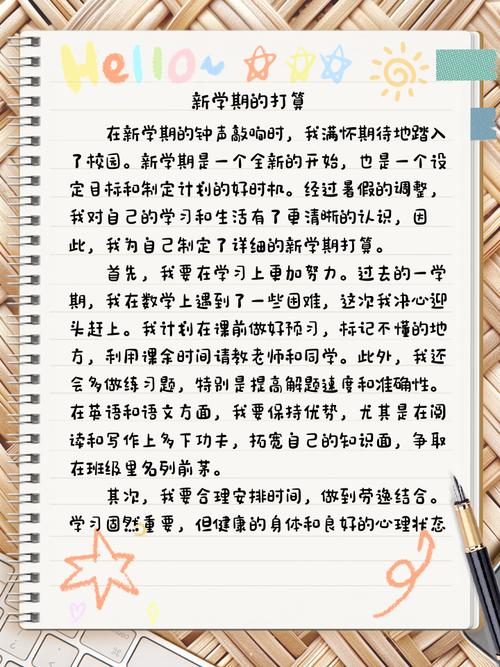 Hello~
新学期的打算
在新学期的钟声敲响时，我满怀期待地踏入
了校园。新学期是一个全新的开始，也是一个设
定目标和制定计划的好时机。经过暑假的调整，
我对自己的学习和生活有了更清晰的认识，因
此，我为自己制定了详细的新学期打算。
首先，我要在学习上更加努力。过去的一学
期，我在数学上遇到了一些困难，这次我决心迎
头赶上。我计划在课前做好预习，标记不懂的地
方，利用课余时间请教老师和同学。此外，我还
会多做练习题，特别是提高解题速度和准确性。
在英语和语文方面，我要保持优势，尤其是在阅
读和写作上多下功夫，拓宽自己的知识面，争取
在班级里名列前茅。
其次，我要合理安排时间，做到劳逸结合。
学习固然重要，但健康的身体和良好的心理状态